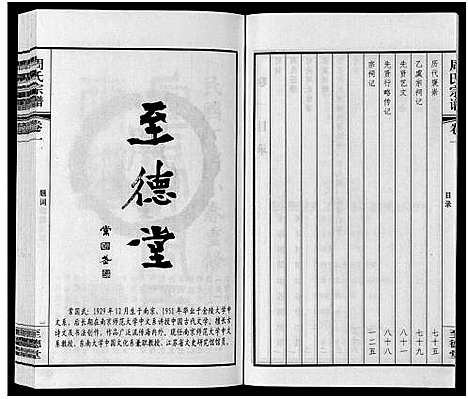 周氏宗谱
卷一
目录
至德堂
历代褒崇
七十五
乙虞宗祠记
七十九
先贤艺文
八十一
先贤行略传记
八十八
宗祠记
一二五
至德堂
常国武：1929年12月生于南京，1951年毕业于金陵大学中
文系。后长期在南京师范大学中文系讲授中国古代文学。擅长古
诗文及书法创作，作品广泛流传海内外。现任南京师范大学中
文系教授、东南大学中国文化系兼职教授、江苏省文史研究馆馆员。
周氏宗谱
卷一
题词
至德堂